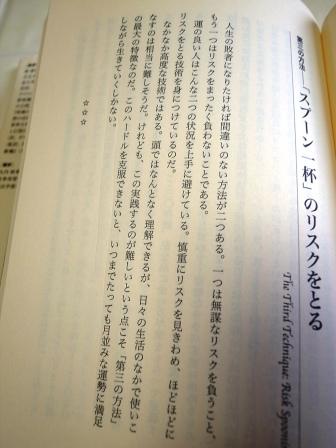 第三の方法──「スプーン一杯」のリスクをとる
The Third Technique: Risk Spooning
人生の敗者になりたければ間違いのない方法が二つある。一つは無謀なリスクを負うこと、
もう一つはリスクをまったく負わないことである。
運の良い人はこんな二つの状況を上手に避けている。慎重にリスクを見きわめ、ほどほどに
リスクをとる技術を身につけているのだ。
なかなか高度な技術ではある。頭ではなんとなく理解できるが、日々の生活のなかで使いこ
なすのは相当に難しそうだ。けれども、この実践するのが難しいという点こそ「第三の方法」
の最大の特徴なのだ。このハードルを克服できないと、いつまでたっても月並みな運勢に満足
しながら生きていくしかない。
☆☆☆